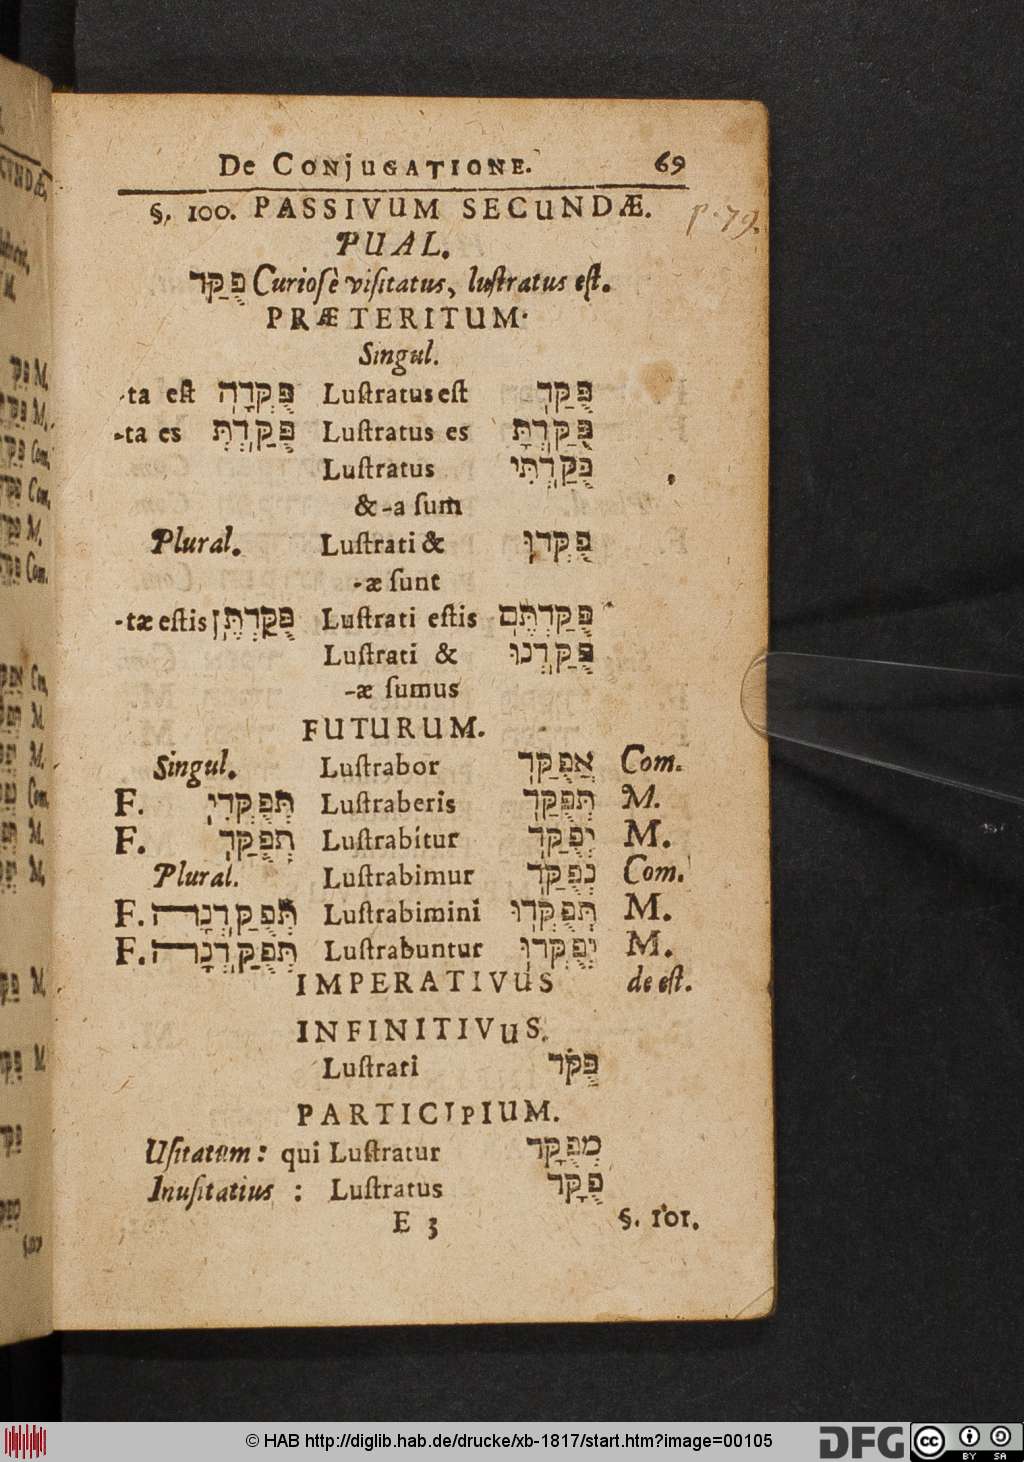 De CONjUGATIONE. 69
§. 100. PASSIVUM SECUNDÆ.
p. 79.
PUAL.
פֻּקַּד Curiosè visitatus, lustratus est.
PRÆTERITUM.
Singul.
-ta est פֻּקְּדָה Lustratus est פֻּקַּד
-ta es פֻּקַּדְתְּ Lustratus es פֻּקַּדְתָּ
Lustratus פֻּקַּדְתִּי
& -a sum
Plural. Lustrati & פֻּקְּדוּ
-æ sunt
-tæ estis פֻּקַּדְתֶּן Lustrati estis פֻּקַּדְתֶּם
Lustrati & פֻּקַּדְנוּ
-æ sumus
FUTURUM.
Singul. Lustrabor אֲפֻקַּד Com.
F. תְּפֻקְּדִי Lustraberis תְּפֻקַּד M.
F. תְּפֻקַּד Lustrabitur יְפֻקַּד M.
Plural. Lustrabimur נְפֻקַּד Com.
F. תְּפֻקַּדְנָה Lustrabimini תְּפֻקְּדוּ M.
F. תְּפֻקַּדְנָה Lustrabuntur יְפֻקְּדוּ M.
IMPERATIVUS de est.
INFINITIVUS.
Lustrari פֻּקֹּד
PARTICIPIUM.
Usitatum: qui Lustratur מְפֻקָּד
Inusitatius: Lustratus פֻּקָּד
E 3 §. 101.
© HAB http://diglib.hab.de/drucke/xb-1817/start.htm?image=00105
DFG cc BY SA